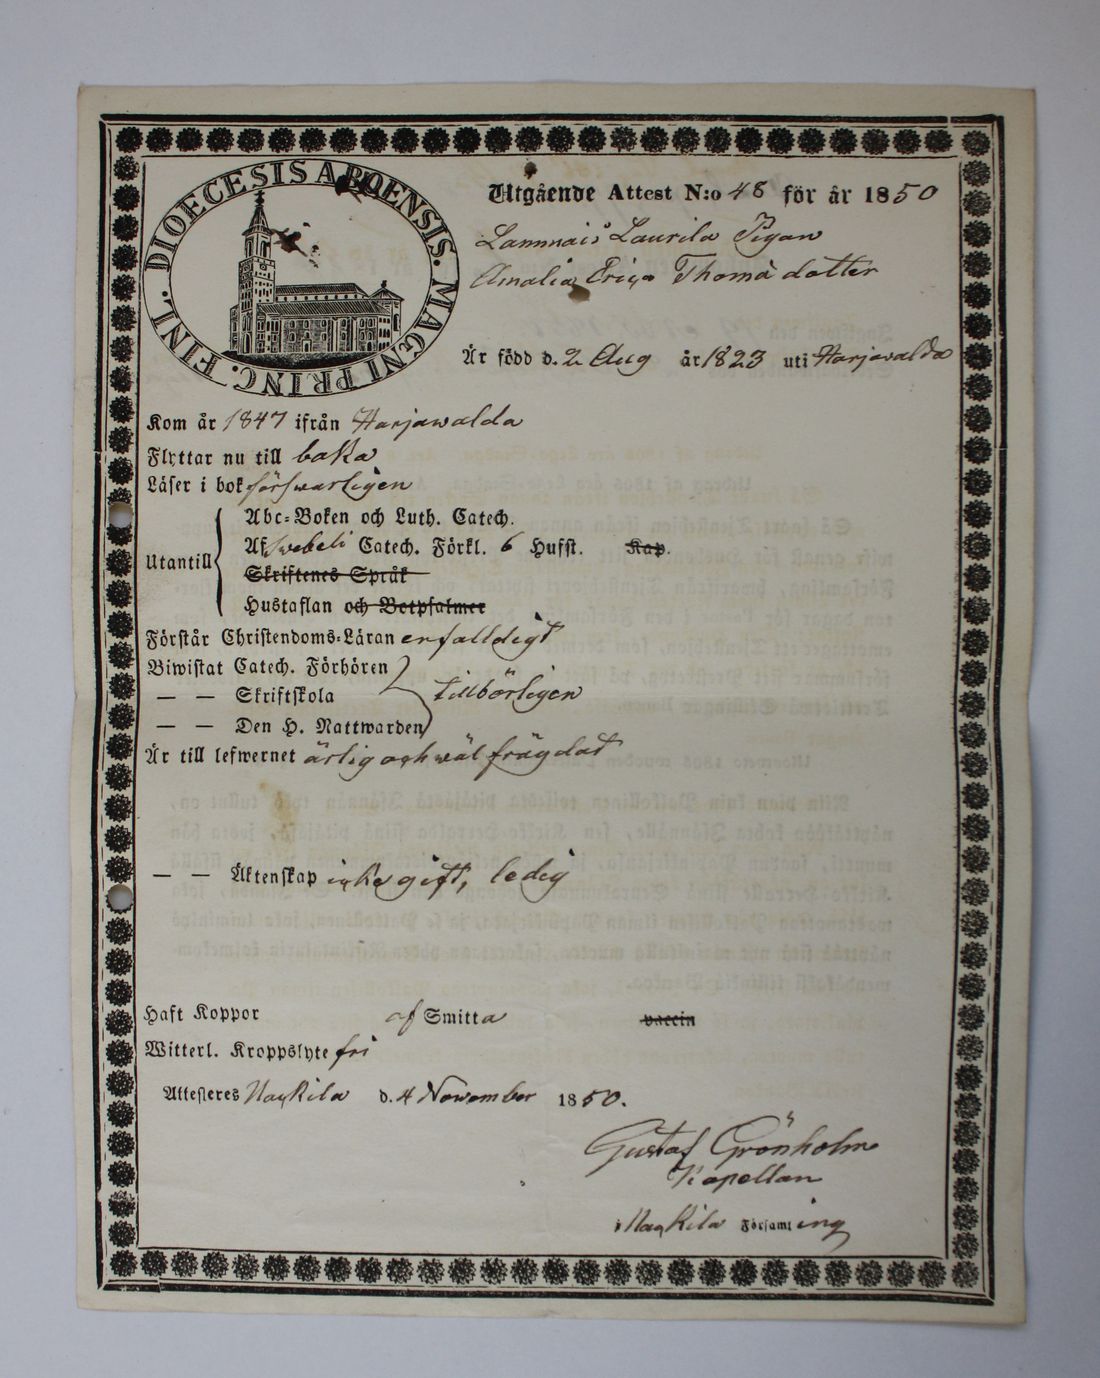 DIOECESIS ABOENSIS. MAGNI PRINC. FINL.
Utgående Attest N:o 48 för år 1850
Lammais Laurila Pigan
Amalia Erica Thomædotter
Är född d. 2 Aug år 1823 uti Harjavalda
Kom år 1847 ifrån Harjawalda
Flyttar nu till baka
Läser i bok försvarligen
Utantill
Abc-Boken och Luth. Catech.
Af Swebeli Catech. Förkl. 6 Hufst. Kap.
Skriftenes Språk
Hustaflan och Botpsalmer
Förstår Christendoms-Läran enfalldigt
Biwistat Catech. Förhören
— — Skriftskola tillbörligen
— — Den H. Nattwarden
Är till lefwernet ärlig och wälfrägdat
— — Äktenskap icke gift, ledig
Haft Koppor af Smitta vaccin
Witterl. Kroppslyte fri
Attesteres Nackila d. 4 November 1850.
Gustaf Grönholm
Kapellan
i Nackila Församl ing